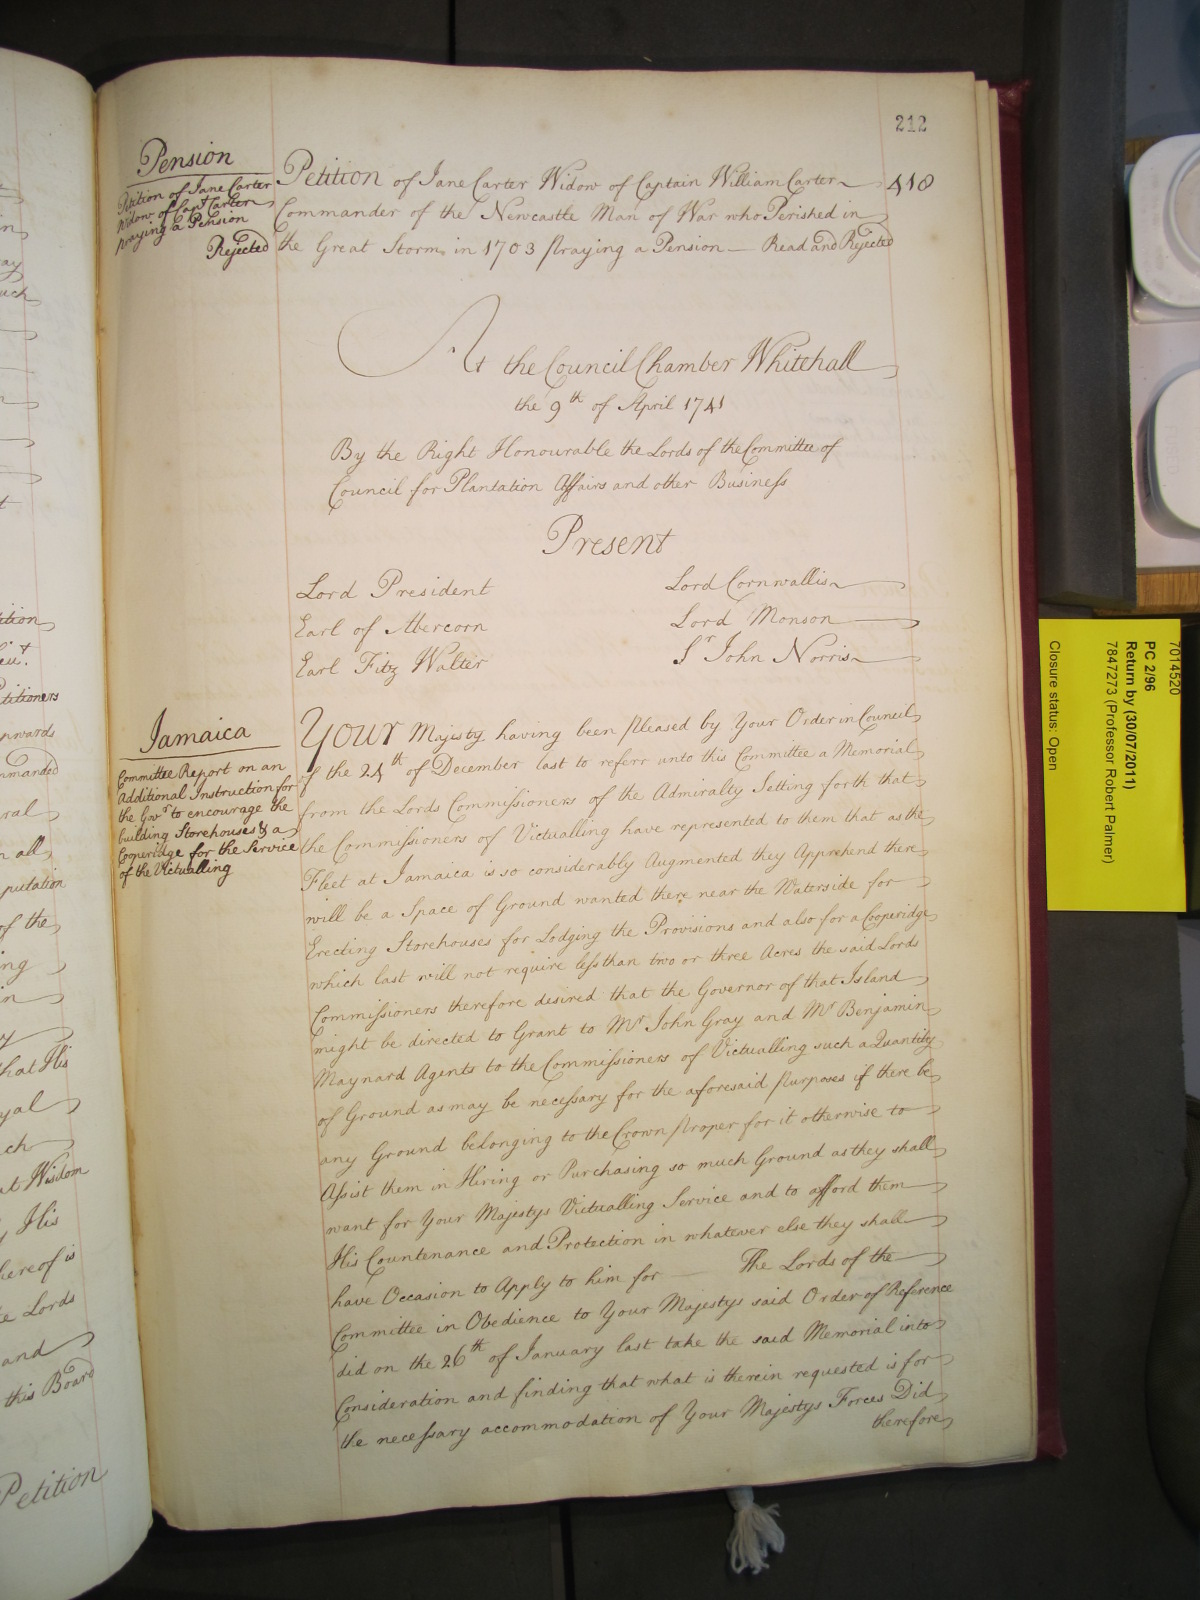 212
418
Pension
Petition of Jane Carter
Widow of Capt. Carter
praying a Pension
Rejected
Petition of Jane Carter Widow of Captain William Carter
Commander of the Newcastle Man of War who Perished in
the Great Storm in 1703 praying a Pension — Read and Rejected
At the Council Chamber Whitehall
the 9th of April 1741
By the Right Honourable the Lords of the Committee of
Council for Plantation Affairs and other Business
Present
Lord President
Earl of Abercorn
Earl Fitz Walter
Lord Cornwallis
Lord Monson
Sr John Norris
Jamaica
Committee Report on an
Additional Instruction for
the Govr to encourage the
building Storehouses & a
Cooperidge for the Service
of the Victualling
Your Majesty having been pleased by Your Order in Council
of the 24th of December last to referr unto this Committee a Memorial
from the Lords Commissioners of the Admiralty Setting forth that
the Commissioners of Victualling have represented to them that as the
Fleet at Jamaica is so considerably Augmented they Apprehend there
will be a Space of Ground wanted there near the Waterside for
Erecting Storehouses for Lodging the Provisions and also for a Cooperidge
which last will not require less than two or three Acres the said Lords
Commissioners therefore desired that the Governor of that Island
might be directed to Grant to Mr John Gray and Mr Benjamin
Maynard Agents to the Commissioners of Victualling such a Quantity
of Ground as may be necessary for the aforesaid purposes if there be
any Ground belonging to the Crown proper for it otherwise to
Assist them in Hiring or Purchasing so much Ground as they shall
want for Your Majestys Victualling Service and to afford them
His Countenance and Protection in whatever else they shall
have Occasion to Apply to him for — The Lords of the
Committee in Obedience to Your Majestys said Order of Reference
did on the 26th of January last take the said Memorial into
Consideration and finding that what is therein requested is for
the necessary accommodation of Your Majestys Forces Did
therefore
7014520
PC 2/96
Return by (30/07/2011)
7847273 (Professor Robert Palmer)
Closure status: Open
tition
titioners
upwards
mmanded
ral
n all
putation
of the
ing
in
that His
yal
at Wisdom
His
hereof is
Lords
and
this Board
Petition